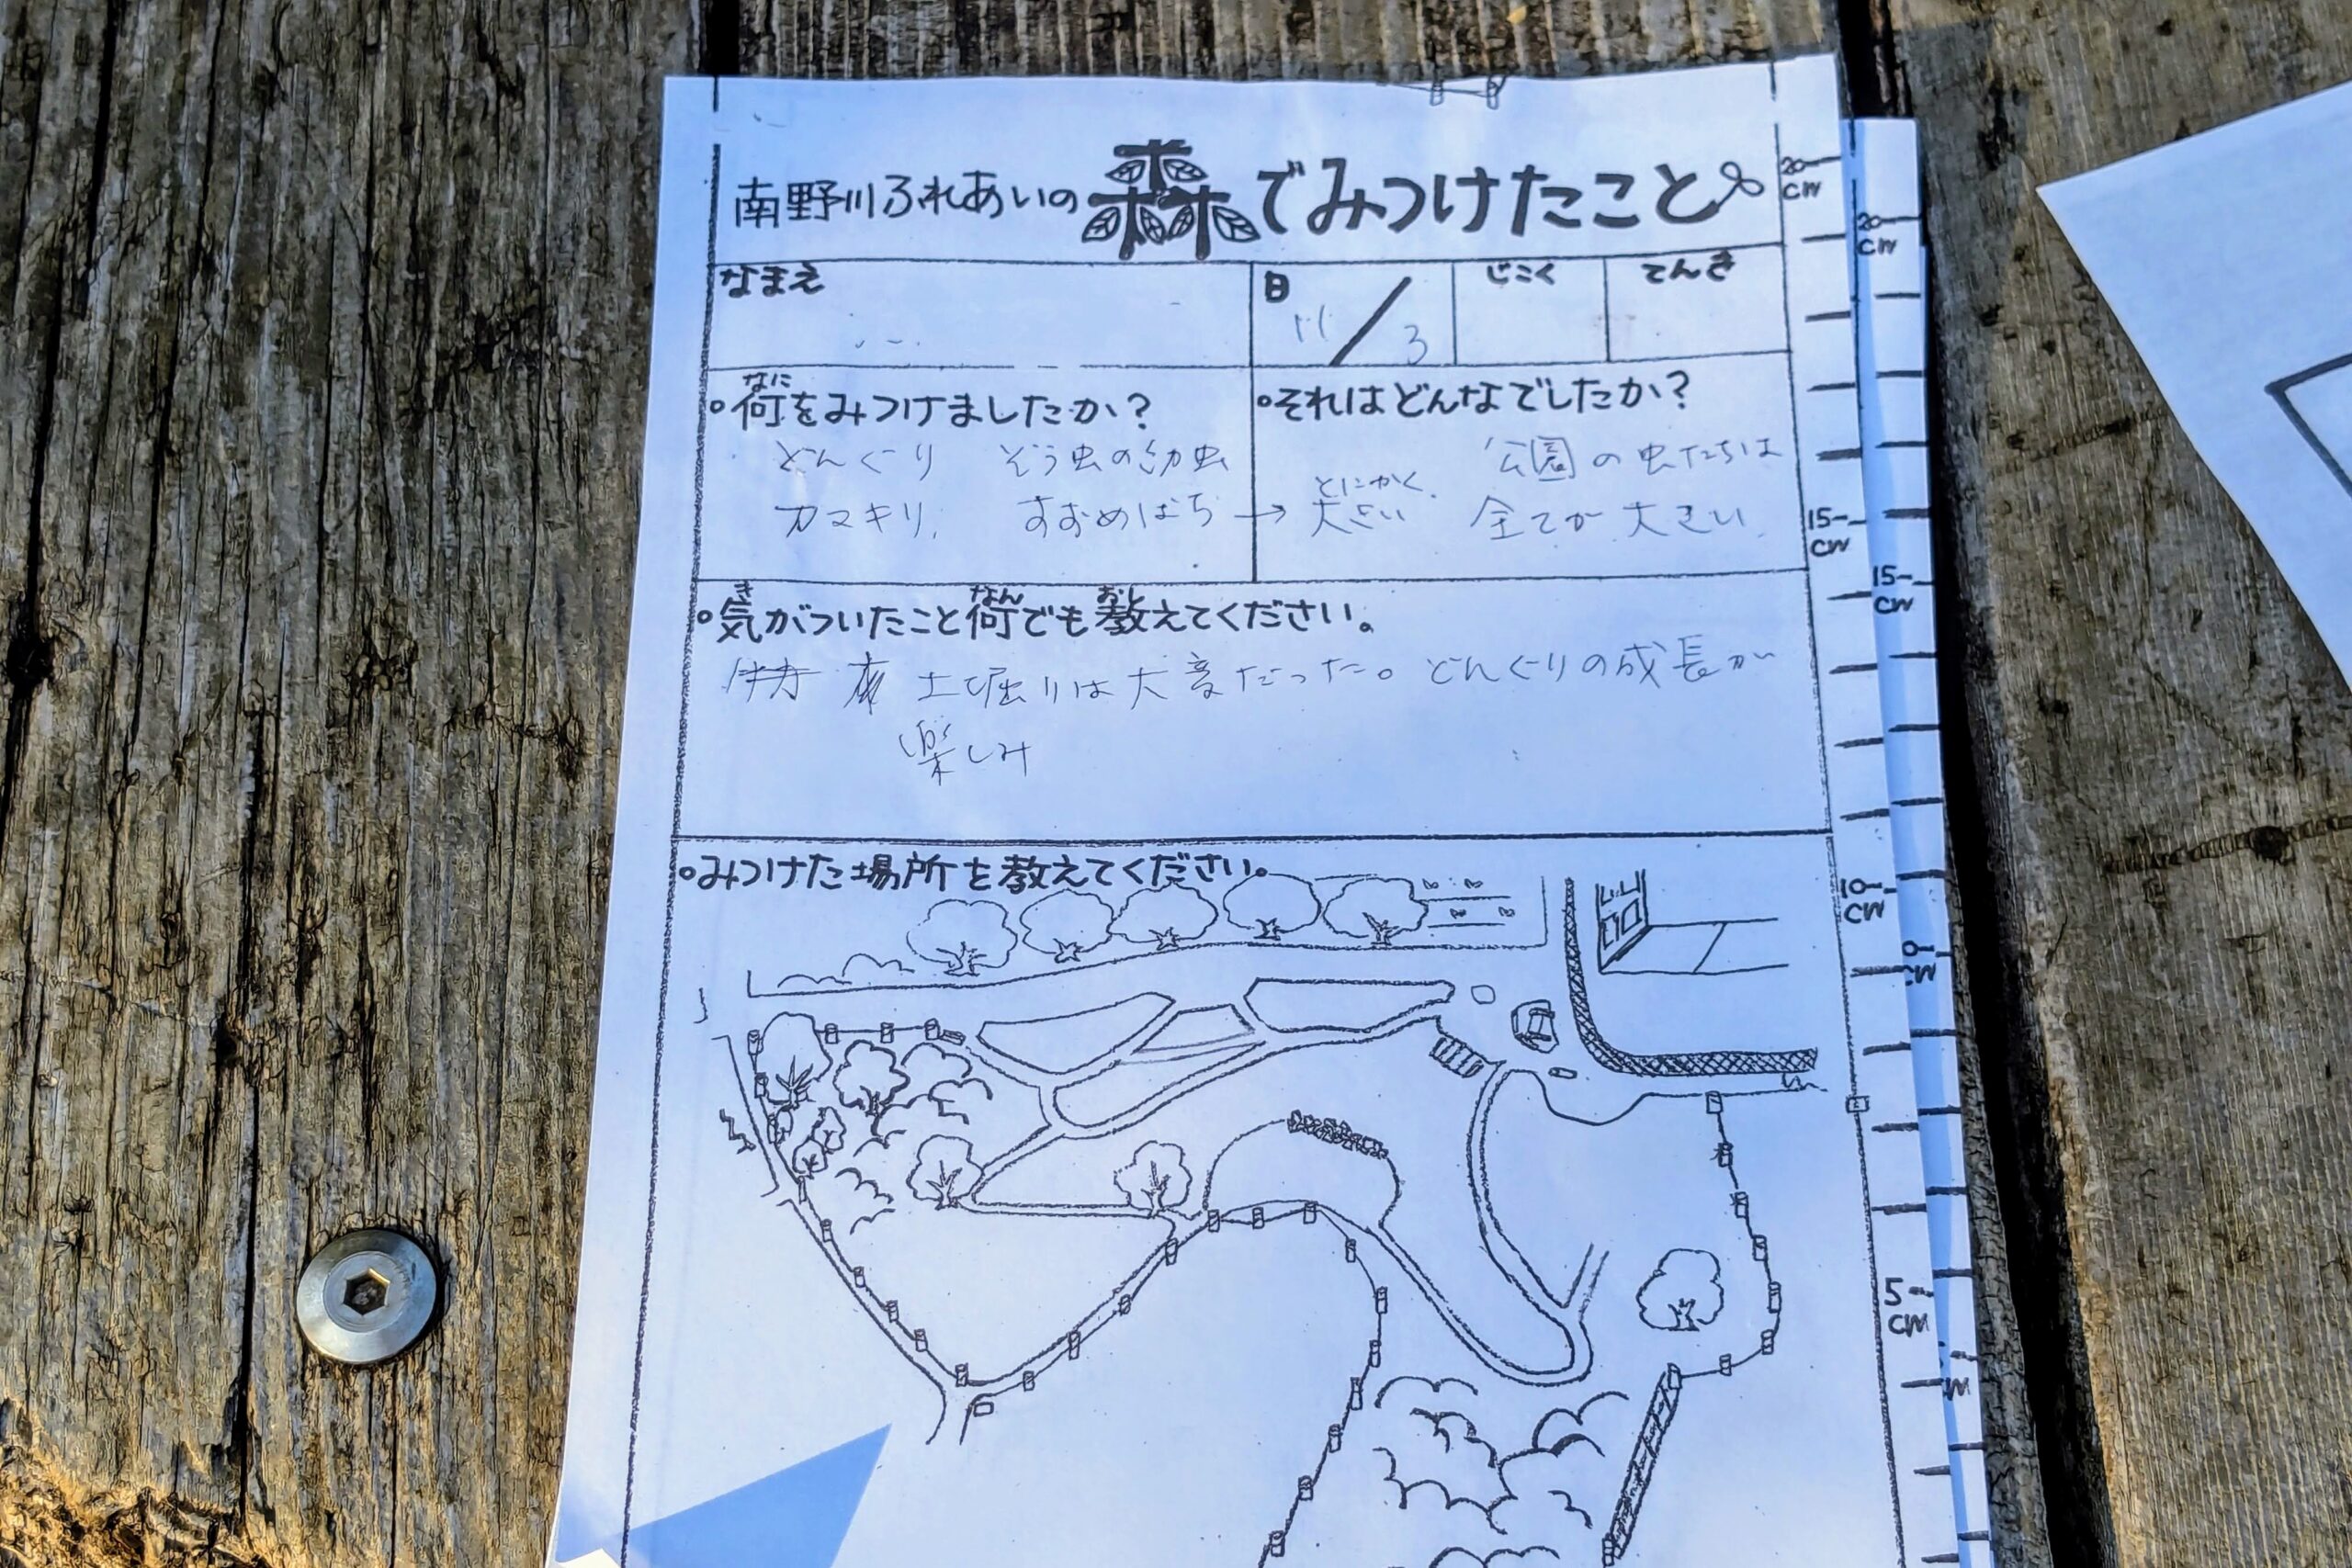 南野川ふれあいの森でみつけたこと
なまえ
日
11/3
じこく
てんき
なに
何をみつけましたか?
どんぐり ぞう虫の幼虫
カマキリ、 すずめばち →
それはどんなでしたか?
とにかく、
大きい
公園の虫たちは
全てが大きい、
き なん おし
気がついたこと何でも教えてください。
土堀りは大変だった。どんぐりの成長が
楽しみ
みつけた場所を教えてください。
20
CM
15
CM
10
CM
5
CM
20
CM
15
CM